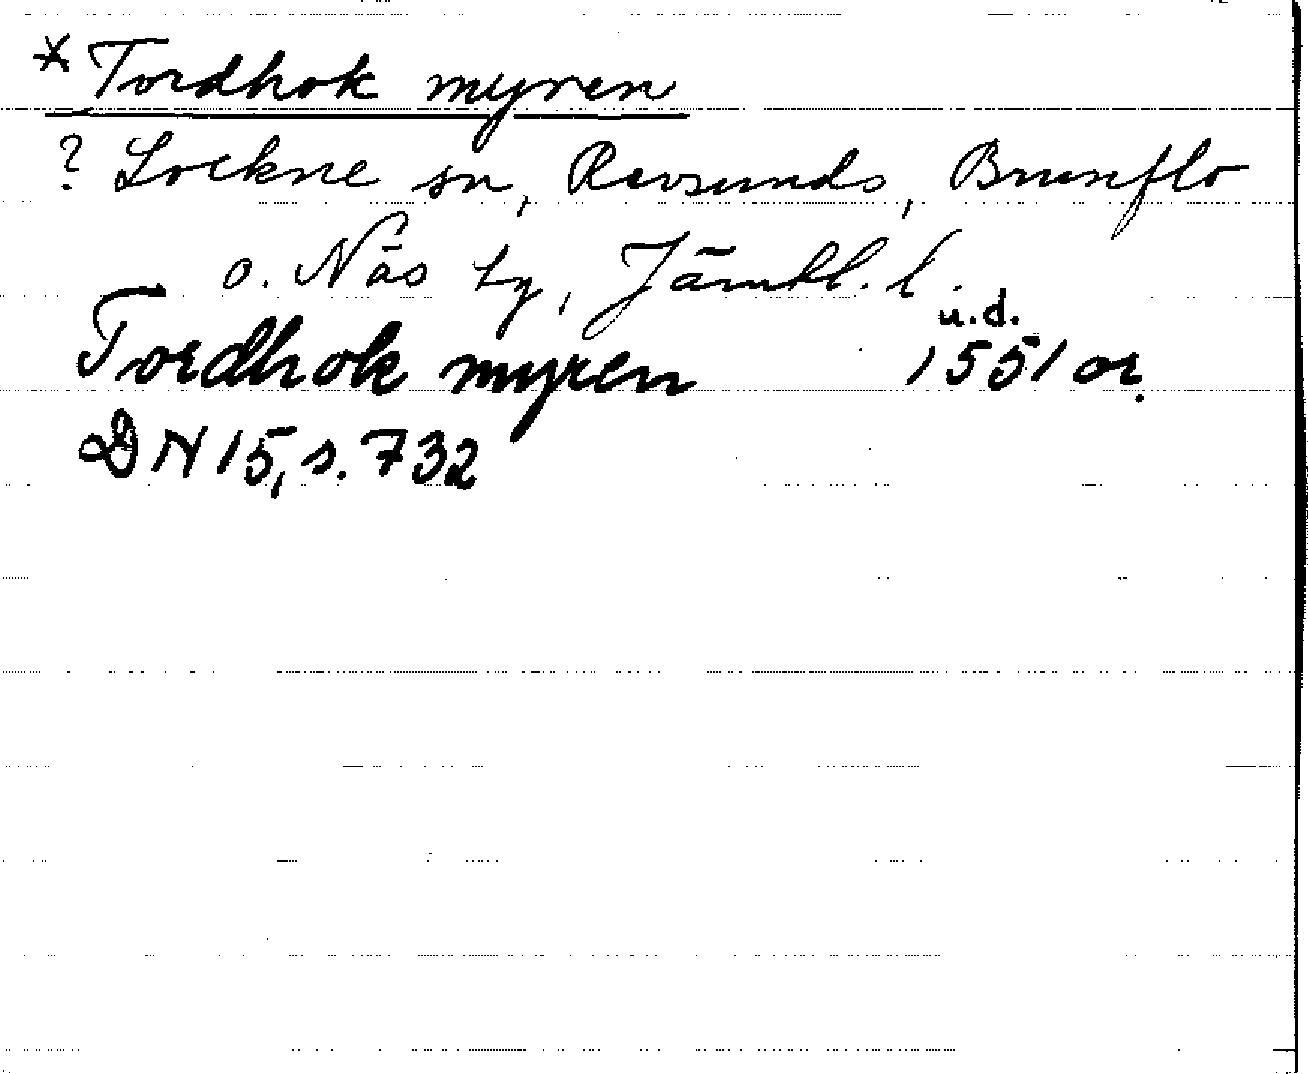 * Tordhok myren
? Lockne sn, Revsunds, Brunflo
o. Näs tg, Jämtl. l.
u.d.
Tordhok myren 1551 or.
DN 15, s. 732